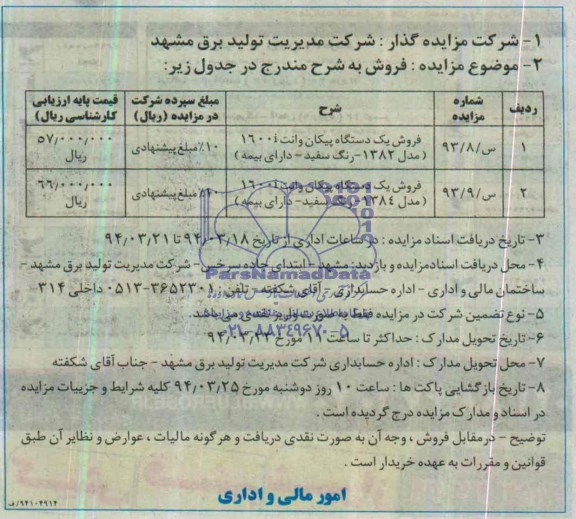 ۱- شرکت مزایده گذار : شرکت مدیریت تولید برق مشهد
۲- موضوع مزایده : فروش به شرح مندرج در جدول زیر:
ردیف | شماره مزایده | شرح | مبلغ سپرده شرکت در مزایده (ریال) | قیمت پایه ارزیابی کارشناسی ریال)
۱ | س/۹۳/۸ | فروش یک دستگاه پیکان وانت ۱۶۰۰i (مدل ۱۳۸۲-رنگ سفید - دارای بیمه) | ۱۰٪ مبلغ پیشنهادی | ۵۷/۰۰۰/۰۰۰ ریال
۲ | س/۹۳/۹ | فروش یک دستگاه پیکان وانت ۱۶۰۰i (مدل ۱۳۸٤-رنگ سفید- دارای بیمه) | ۱۰٪ مبلغ پیشنهادی | ۶۶/۰۰۰/۰۰۰ ریال
۳- تاریخ دریافت اسناد مزایده : در ساعات اداری از تاریخ ۹۴,۰۳,۱۸ تا ۹۴,۰۳,۲۱
۴- محل دریافت اسنادمزایده و بازدید: مشهد - ابتدای جاده سرخس - شرکت مدیریت تولید برق مشهد -
ساختمان مالی و اداری - اداره حسابداری - آقای شکفته - تلفن : ۳۶۵۲۳۰۱-۰۵۱۳ داخلی ۳۱۴
ParsNamadData
۵- نوع تضمین شرکت در مزایده فقط به صورت واریز نقدی می باشد
۰۲۱-۸۸۳۴۹۶۷۰-۵
۶- تاریخ تحویل مدارک : حداکثر تا ساعت ۱۱ مورخ
۷- محل تحویل مدارک : اداره حسابداری شرکت مدیریت تولید برق مشهد - جناب آقای شکفته
۸- تاریخ بازگشایی پاکت ها : ساعت ۱۰ روز دوشنبه مورخ ۹۴,۰۳,۲۵ کلیه شرایط و جزییات مزایده
در اسناد و مدارک مزایده درج گردیده است .
توضیح - در مقابل فروش ، وجه آن به صورت نقدی دریافت و هر گونه مالیات ، عوارض و نظایر آن طبق
قوانین و مقررات به عهده خریدار است .
امور مالی و اداری
۹۴۱۰۲۹۱۲/ف